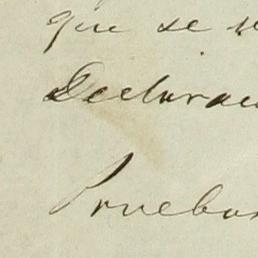 que se
Declarac
Pruebas